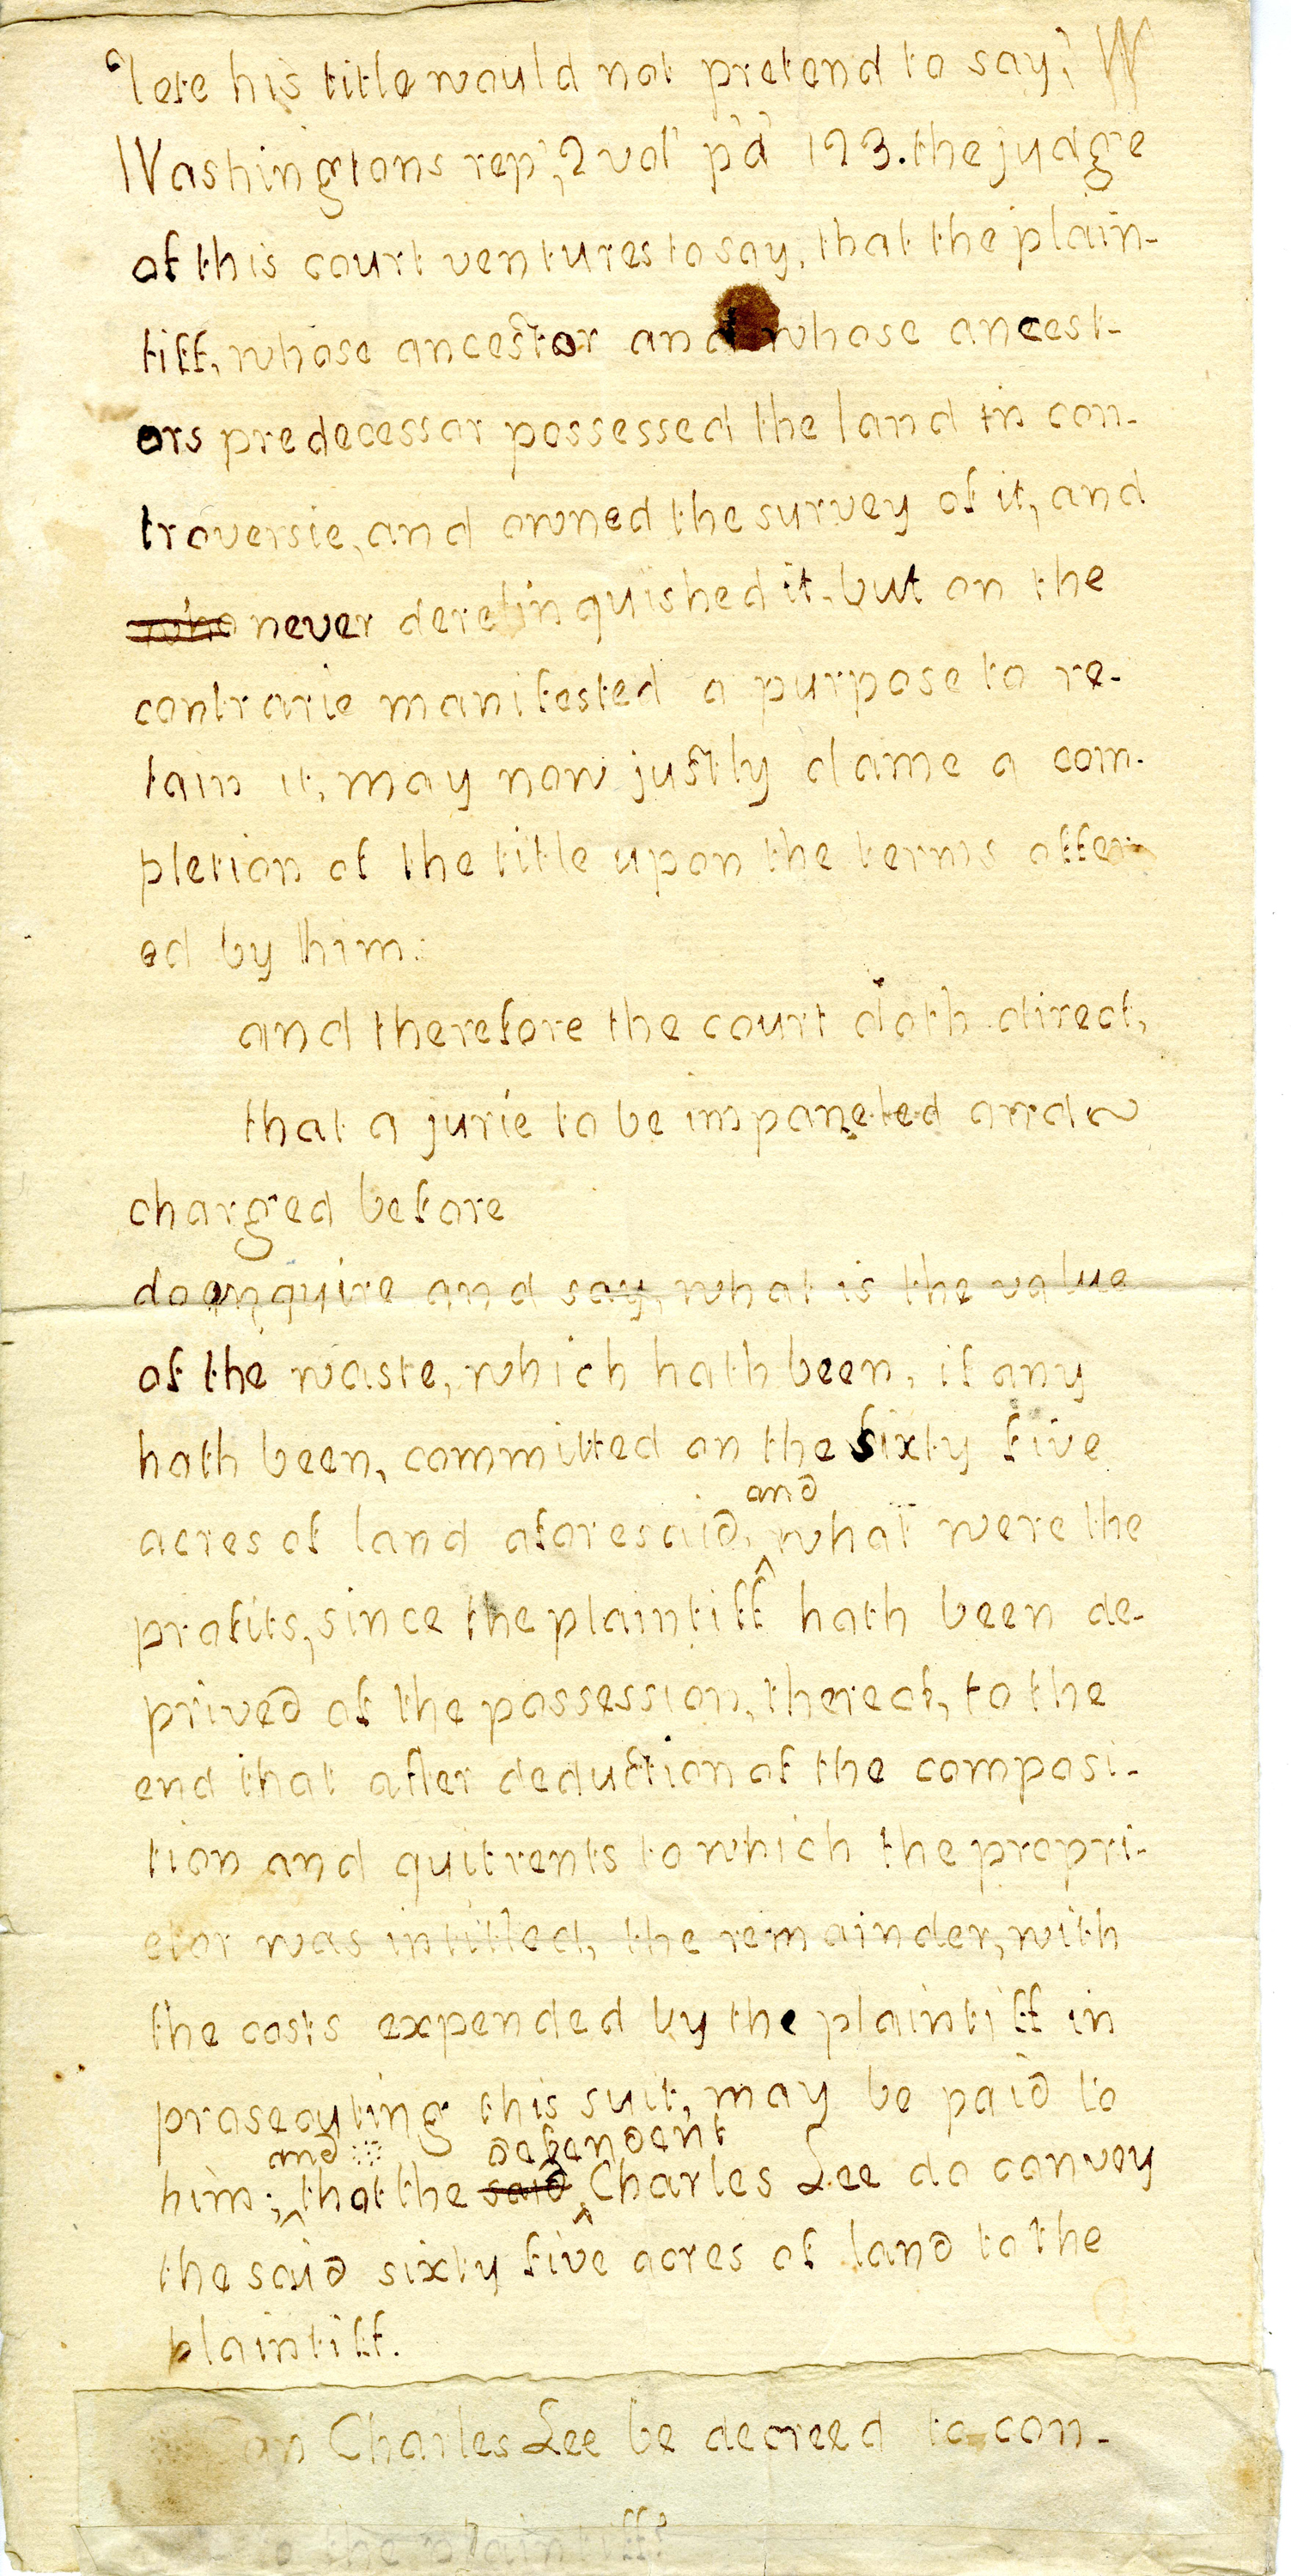 'lete his title would not pretend to say,' W
Washingtons rep', 2 vol' pa' 123. the judge
of this court ventures to say, that the plain-
tiff, whose ancestor and whose ancest-
ors predecessor possessed the land in con-
troversie, and owned the survey of it, and
who never derelinquished it, but on the
contrarie manifested a purpose to re-
tain it, may now justly clame a com-
pletion of the title upon the terms offer-
ed by him:
and therefore the court doth direct,
that a jurie to be impaneled and
charged before
do enquire and say, what is the value
of the waste, which hath been, if any
hath been, committed on the sixty five
and
acres of land aforesaid, ^ what were the
profits, since the plaintiff hath been de-
prived of the possession, thereof, to the
end that after deduction of the composi-
tion and quitrents to which the propri-
etor was intitled, the remainder, with
the costs expended by the plaintiff in
prosecuting this suit, may be paid to
and defendent
him; ^ that the said ^ Charles Lee do convey
the said sixty five acres of land to the
plaintiff.
Charles Lee be decreed to con-
to the plaintiff?